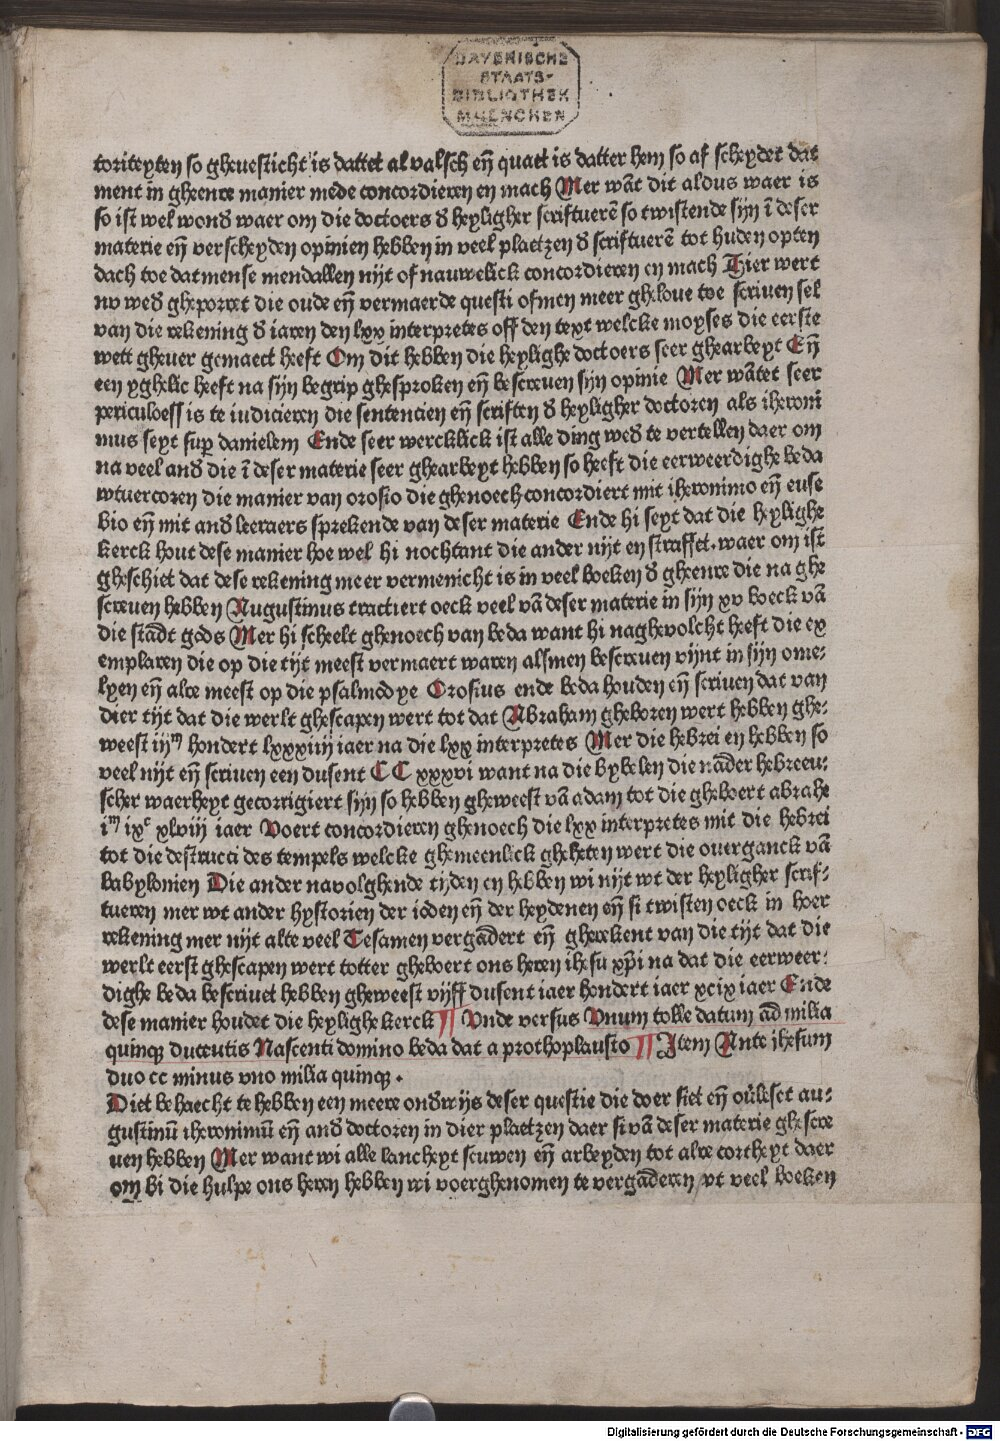 BAYERISCHE
STAATS-
BIBLIOTHEK
MUENCHEN
toriteyten so gheuesticht is dattet al valsch eñ quaet is datter hem so af scheydet dat
ment in gheenre manier mede concordieren en mach Mer wãt dit aldus waer is
so ist wel wonđ waer om die doctoers đ heyligher scriftuerẽ so twistende sijn ĩ deser
materie eñ verscheyden opinien hebben in veel plaetzen đ scriftuerẽ tot huden opten
dach toe datmense mendallen nijt of nauwelick concordieren en mach Hier wert
nv weđ gheporret die oude eñ vermaerde questi ofmen meer gheloue toe scriuen sel
van die rekening đ iaren den lxx interpretes off den text welcke moyses die eerste
wett gheuer gemaect heeft Om dit hebben die heylighe doctoers seer ghearbeyt Eñ
een yghelic heeft na sijn begrip ghesproken eñ bescreuen sijn opinie Mer wãtet seer
periculoess is te iudicieren die sentencien eñ scriften đ heyligher doctoren als iheroni
mus seyt sup danielem Ende seer wercklick ist alle ding weđ te vertellen daer om
na veel anđ die ĩ deser materie seer ghearbeyt hebben so heeft die eerweerdighe beda
wtuercoren die manier van orosio die ghenoech concordiert mit iheronimo eñ euse
bio eñ mit anđ leeraers sprekende van deser materie Ende hi seyt dat die heylighe
kerck hout dese manier hoe wel hi nochtant die ander nijt en straffet. waer om ist
gheschiet dat dese rekening meer vermenicht is in veel boeken đ gheenre die na ghe
screuen hebben Augustinus tractiert oeck veel vã deser materie in sijn xv boeck vã
die stadt gods Mer hi scheelt ghenoech van beda want hi naghevolcht heeft die ex
emplaren die op die tijt meest vermaert waren alsmen bescreuen vijnt in sijn ome-
lyen eñ alre meest op die psalmodye Orosius ende beda houden eñ scriuen dat van
dier tijt dat die werlt ghescapen wert tot dat Abraham gheboren wert hebben ghe-
weest iijᵐ hondert lxxxiiij iaer na die lxx interpretes Mer die hebrei en hebben so
veel nijt eñ scriuen een dusent CC xxxvi want na die bybelen die nader hebreeu-
scher waerheyt gecorrigiert sijn so hebben gheweest vã adam tot die gheboert abrahe
iᵐ ixᶜ xlviij iaer Voert concordieren ghenoech die lxx interpretes mit die hebrei
tot die destrucci des tempels welcke ghemeenlick gheheten wert die ouerganck vã
babylonien Die ander navolghende tijden en hebben wi nijt wt der heyligher scrif-
tueren mer wt ander hystorien der ioden eñ der heydenen eñ si twisten oeck in hoer
rekening mer nijt alte veel Tesamen vergadert eñ gherekent van die tijt dat die
werlt eerst ghescapen wert totter gheboert ons heren ihesu xp̃i na dat die eerweer-
dighe beda bescriuet hebben gheweest vijff dusent iaer hondert iaer xcix iaer Ende
dese manier houdet die heylighe kerck ¶ Vnde versus Vnum tolle datum ad milia
quinqȝ ducentis Nascenti domino beda dat a prothoplausto ¶ Item Ante ihesum
duo cc minus vno milia quinqȝ .
Diet behaecht te hebben een meere onđwijs deser questie die doer siet eñ ouleset au-
gustinũ iheronimũ eñ anđ doctoren in dier plaetzen daer si vã deser materie ghescre
uen hebben Mer want wi alle lancheyt scuwen eñ arbeyden tot alre cortheyt daer
om bi die hulpe ons heren hebben wi voerghenomen te vergaderen vt veel boeken
Digitalisierung gefördert durch die Deutsche Forschungsgemeinschaft - DFG